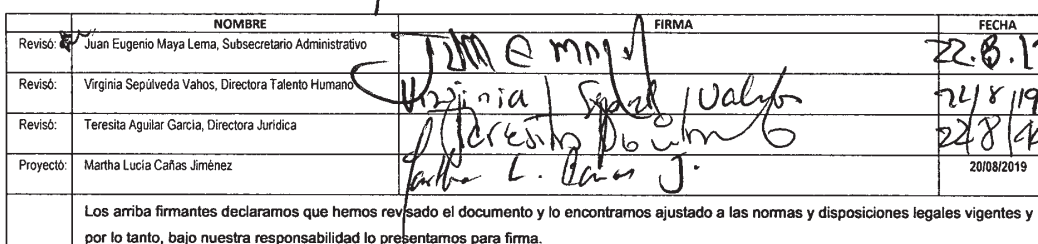 NOMBRE FIRMA FECHA
Revisó: Juan Eugenio Maya Lema, Subsecretario Administrativo 22.8.1
Revisó: Virginia Sepúlveda Vahos, Directora Talento Humano Virginia 21/8/19
Revisó: Teresita Aguilar García, Directora Jurídica Teresita 22/8/
Proyectó: Martha Lucía Cañas Jiménez Martha L. Cañas J. 20/08/2019
Los arriba firmantes declaramos que hemos revisado el documento y lo encontramos ajustado a las normas y disposiciones legales vigentes y
por lo tanto, bajo nuestra responsabilidad lo presentamos para firma.